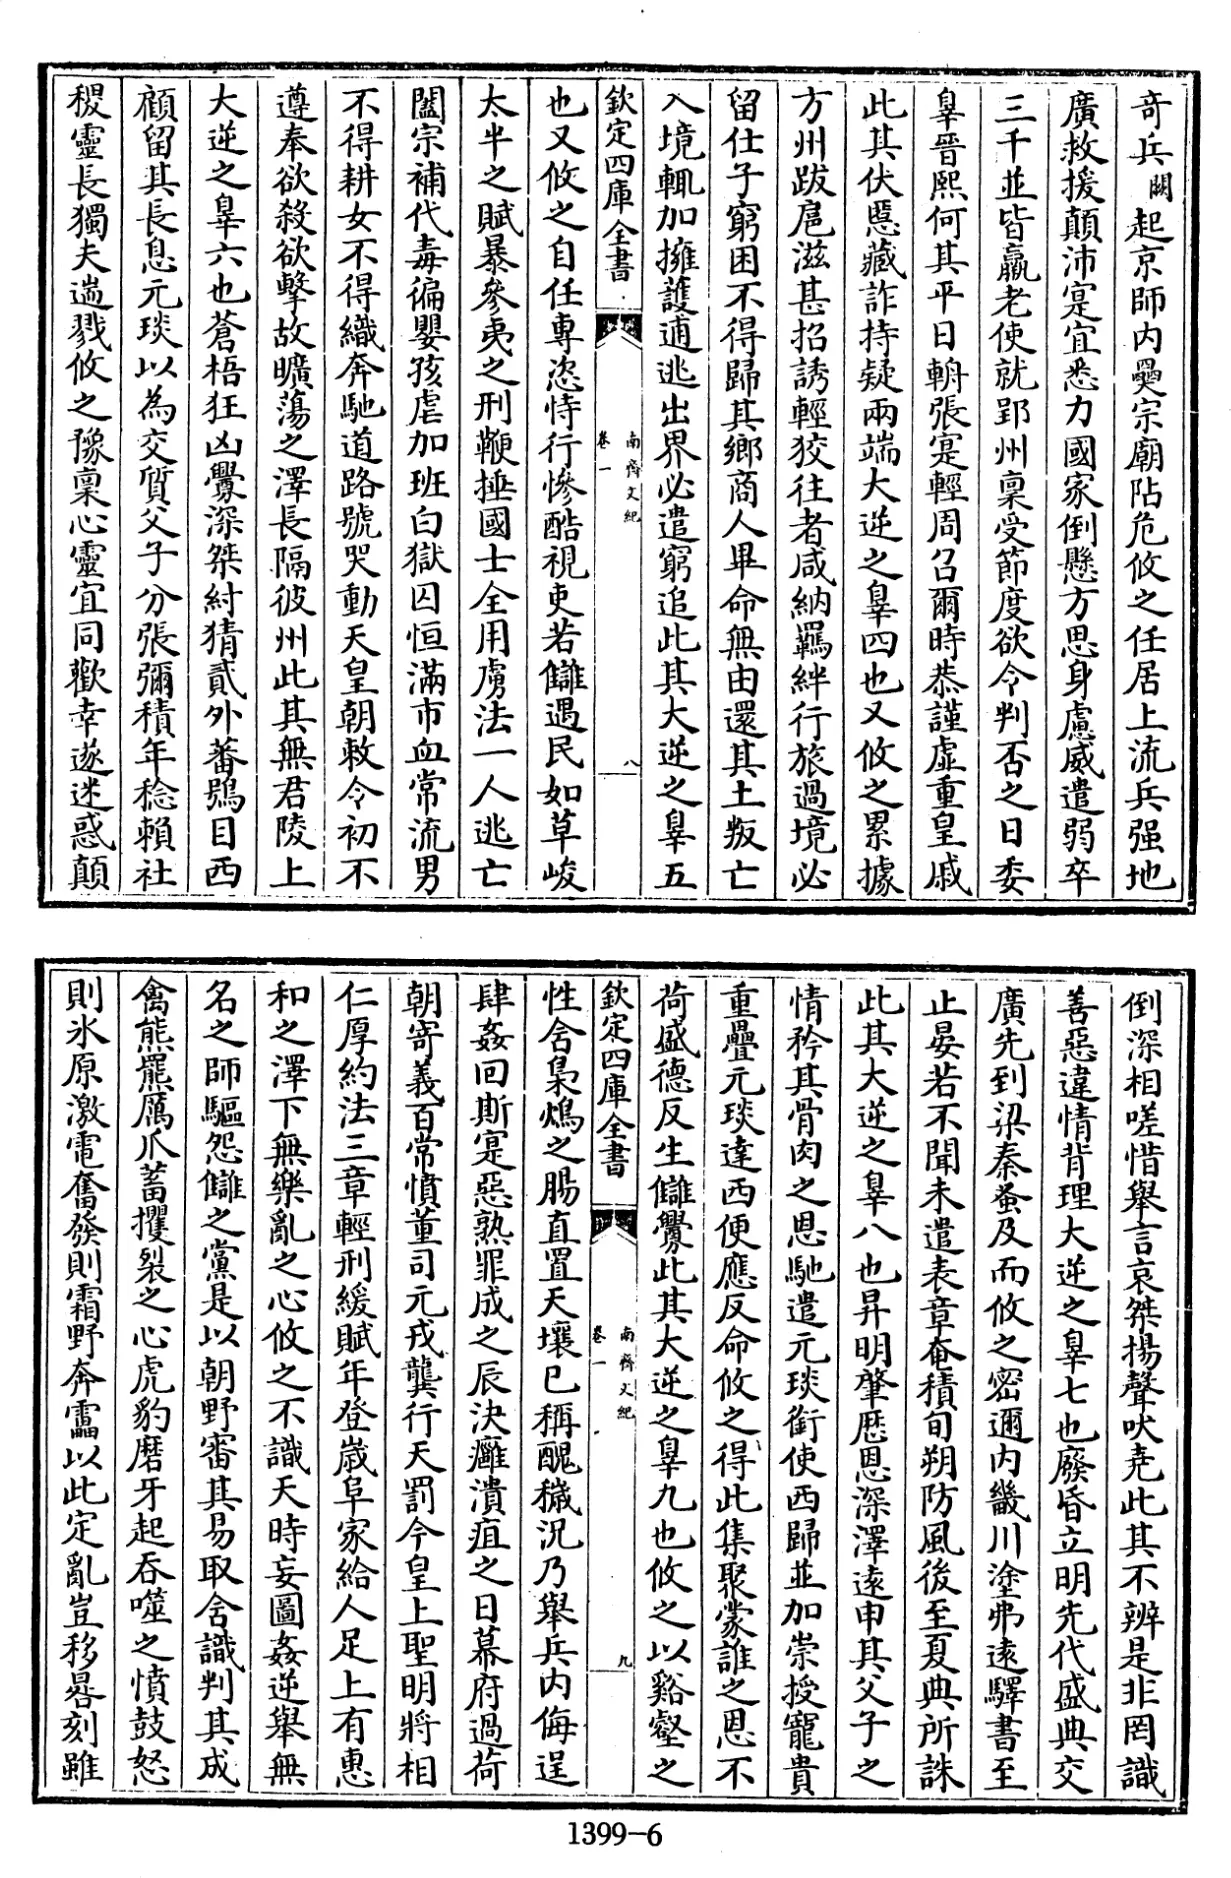 奇兵闕起京師內舋宗廟阽危攸之任居上流兵强地
廣救援顛沛寔宜悉力國家倒懸方思身慮威遣弱卒
三千並皆羸老使就郢州稟受節度欲令判否之日委
辠晉熙何其平日輈張寔輕周召爾時恭謹虛重皇戚
此其伏慝藏詐持疑兩端大逆之辠四也又攸之累據
方州跋扈滋甚招誘輕狡往者咸納羈絆行旅過境必
留仕子窮困不得歸其鄉商人畢命無由還其土叛亡
入境輒加擁護逋逃出界必遣窮追此其大逆之辠五
欽定四庫全書
南齊文紀
卷一
八
也又攸之自任專恣恃行慘酷視吏若讎遇民如草峻
太半之賦暴參夷之刑鞭捶國士全用虜法一人逃亡
闔宗補代毒徧嬰孩虐加班白獄囚恒滿市血常流男
不得耕女不得織奔馳道路號哭動天皇朝敕令初不
遵奉欲殺欲擊故曠蕩之澤長隔彼州此其無君陵上
大逆之辠六也蒼梧狂凶釁深桀紂猜貳外蕃鴟目西
顧留其長息元琰以為交質父子分張彌積年稔賴社
稷靈長獨夫遄戮攸之豫稟心靈宜同歡幸遂迷惑顛
倒深相嗟惜舉言哀桀揚聲吠堯此其不辨是非罔識
善惡違情背理大逆之辠七也廢昏立明先代盛典交
廣先到梁秦蚤及而攸之密邇內畿川塗弗遠驛書至
止晏若不聞未遣表章奄積旬朔防風後至夏典所誅
此其大逆之辠八也昇明肇歷恩深澤遠申其父子之
情矜其骨肉之恩馳遣元琰銜使西歸並加崇授寵貴
重疊元琰達西便應反命攸之得此集聚蒙誰之恩不
荷盛德反生讎釁此其大逆之辠九也攸之以谿壑之
欽定四庫全書
南齊文紀
卷一
九
性含梟鴆之腸直置天壤已稱醜穢況乃舉兵內侮逞
肆姦回斯寔惡熟罪成之辰決癰潰疽之日幕府過荷
朝寄義百常憤董司元戎龔行天罰今皇上聖明將相
仁厚約法三章輕刑緩賦年登歲阜家給人足上有惠
和之澤下無樂亂之心攸之不識天時妄圖姦逆舉無
名之師驅怨讎之黨是以朝野審其易取含識判其成
禽熊羆厲爪蓄攫裂之心虎豹磨牙起吞噬之憤鼓怒
則氷原激電奮發則霜野奔雷以此定亂豈移晷刻雖
1399-6